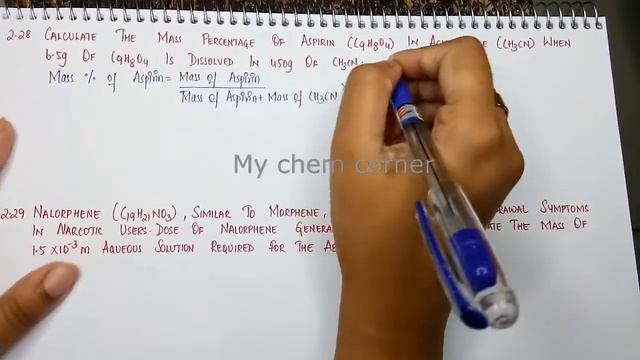 2.28 CALCULATE THE MASS PERCENTAGE OF ASPIRIN (C9H8O4) IN (CH3CN) WHEN
6.5g OF C9H8O4 IS DISSOLVED IN 450g OF CH3CN.
Mass % of Aspirin = Mass of Aspirin
Mass of Aspirin + Mass of CH3CN
My chem corner
2.29 NALORPHENE (C19H21NO3), SIMILAR TO MORPHENE, SYMPTOMS
IN NARCOTIC USERS. DOSE OF NALORPHENE THE MASS OF
1.5 X10-3 m AQUEOUS SOLUTION REQUIRED FOR THE